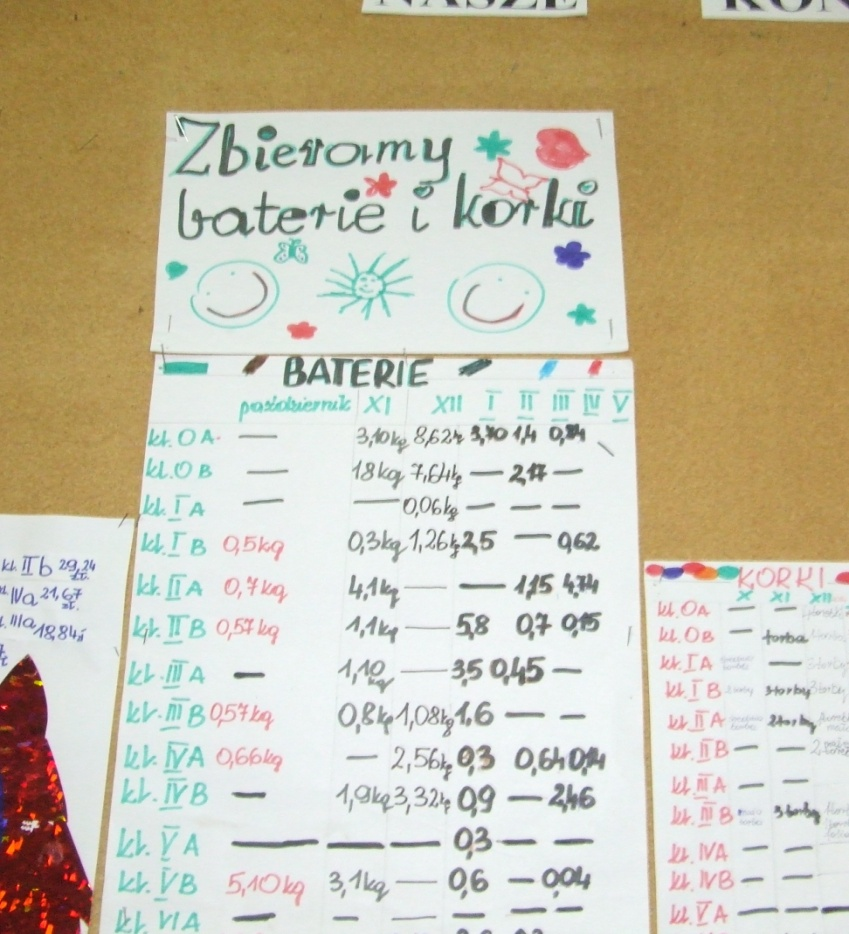 NASZE
Zbieramy
baterie i korki
BATERIE
październik XI XII I II III IV V
kl. 0 A — 3,10kg 8,62k 3,70 1,4
kl. 0 B — 18kg 7,64kg — 2,17 —
kl. I A — — 0,06kg — — —
kl. I B 0,5kg 0,3kg 1,26kg 2,5 — 0,62
kl. II A 0,7kg 4,1kg — — 1,15 4,74
kl. II B 0,57kg 1,1kg — 5,8 0,7 0,15
kl. III A — 1,10 kg — 3,5 0,45 —
kl. III B 0,57kg 0,8kg 1,08kg 1,6 — —
kl. IV A 0,66kg — 2,56kg 0,3 0,64
kl. IV B — 1,9kg 3,32kg 0,9 — 2,46
kl. V A — — — 0,3 — —
kl. V B 5,10kg 3,1kg — 0,6 — 0,04
kl. VI A — — — — —
kl. II b 29,24 zł.
IVa 21,67 zł.
IIIa 18,84
KORKI
X XI XII
kl. 0A — —
kl. 0B — torba
kl. I A —
kl. I B 3torby
kl. II A 2torby
kl. II B — —
kl. III A — —
kl. III B 3torby
kl. IVA — —
kl. IVB — —
kl. V A — — —